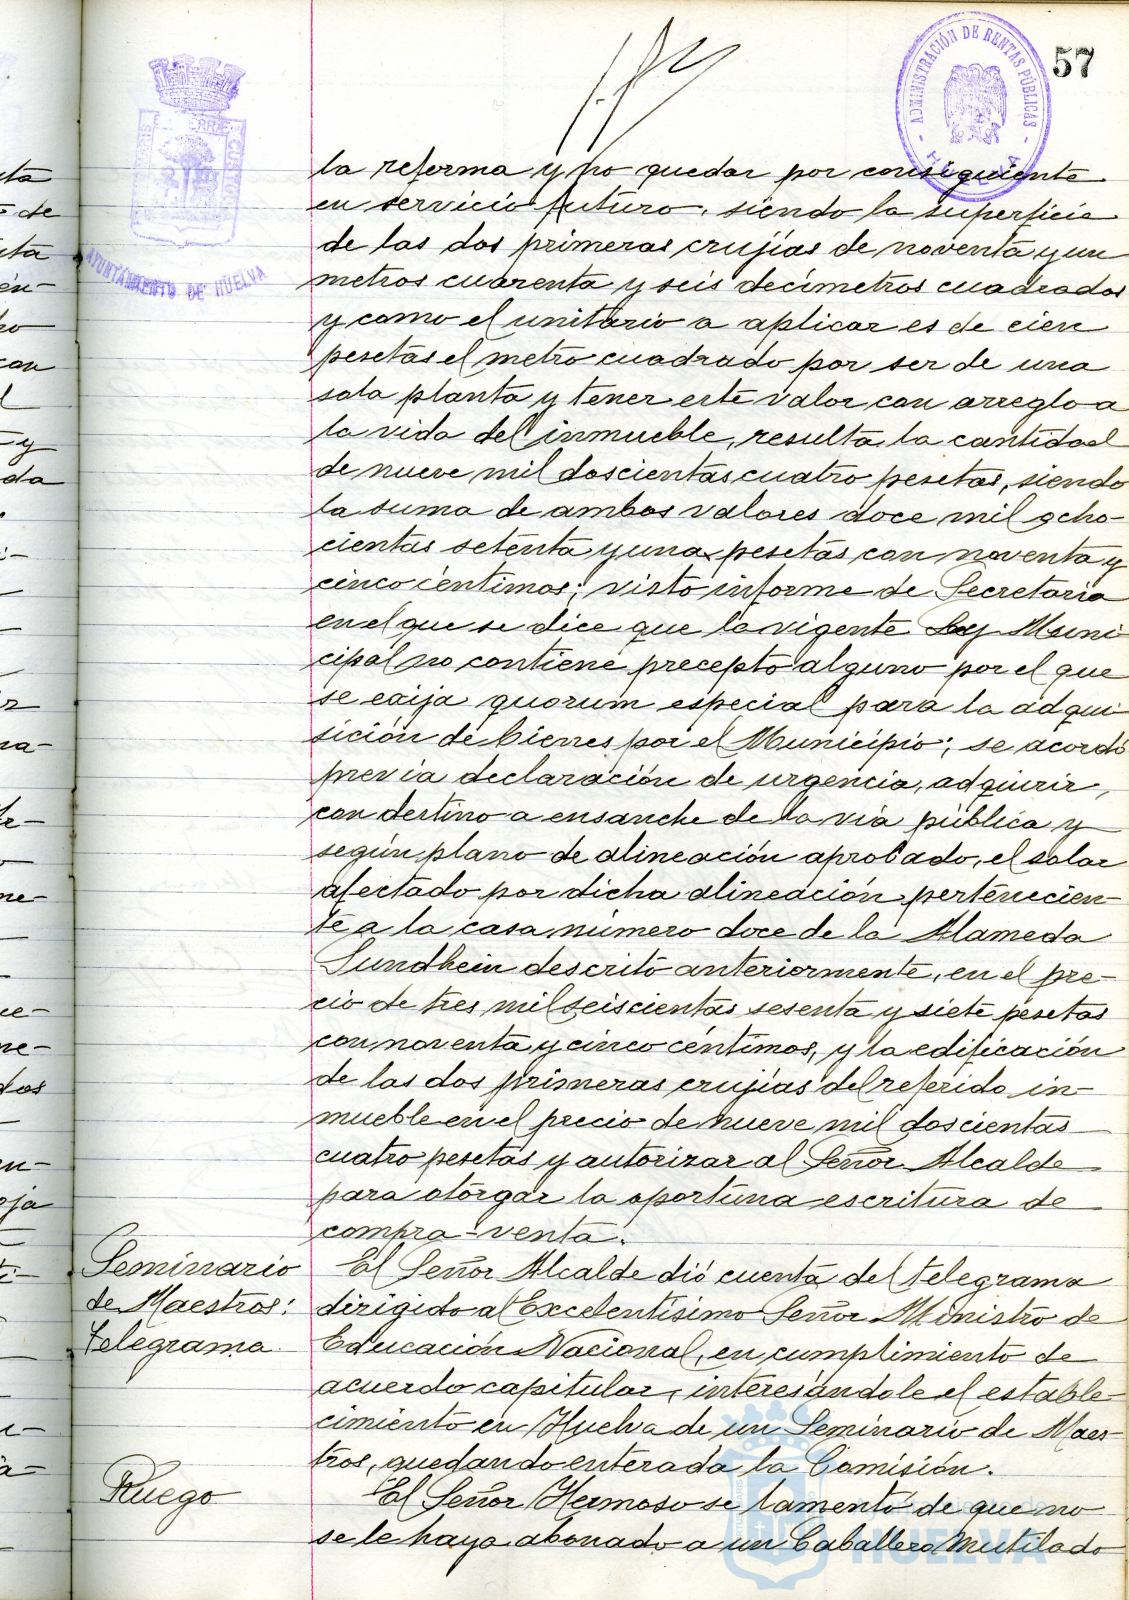 57
ADMINISTRACIÓN DE RENTAS PÚBLICAS
HUELVA
AYUNTAMIENTO DE HUELVA
la reforma y no quedar por consiguiente
en servicio futuro, siendo la superficie
de las dos primeras crujías de noventa y un
metros cuarenta y seis decímetros cuadrados
y como el unitario a aplicar es de cien
pesetas el metro cuadrado por ser de una
sola planta y tener este valor con arreglo a
la vida del inmueble, resulta la cantidad
de nueve mil doscientas cuatro pesetas, siendo
la suma de ambos valores doce mil ocho-
cientas setenta y una pesetas con noventa y
cinco céntimos; visto informe de Secretaria
en el que se dice que la vigente Ley Muni-
cipal no contiene precepto alguno por el que
se exija quorum especial para la adqui-
sición de bienes por el Municipio; se acordó
previa declaración de urgencia, adquirir,
con destino a ensanche de la vía pública y
según plano de alineación aprobado, el solar
afectado por dicha alineación pertenecien-
te a la casa número doce de la Alameda
Sundhein descrito anteriormente, en el pre-
cio de tres mil seiscientas sesenta y siete pesetas
con noventa y cinco céntimos, y la edificación
de las dos primeras crujías del referido in-
mueble en el precio de nueve mil doscientas
cuatro pesetas y autorizar al Señor Alcalde
para otorgar la oportuna escritura de
compra-venta.
Seminario
de Maestros:
telegrama.
El Señor Alcalde dió cuenta del telegrama
dirigido al Excelentísimo Señor Ministro de
Educación Nacional, en cumplimiento de
acuerdo capitular, interesándole el estable-
cimiento en Huelva de un Seminario de Maes-
tros, quedando enterada la Comisión.
Ruego
El Señor Hermoso se lamentó de que no
se le haya abonado a un Caballero Mutilado
HUELVA